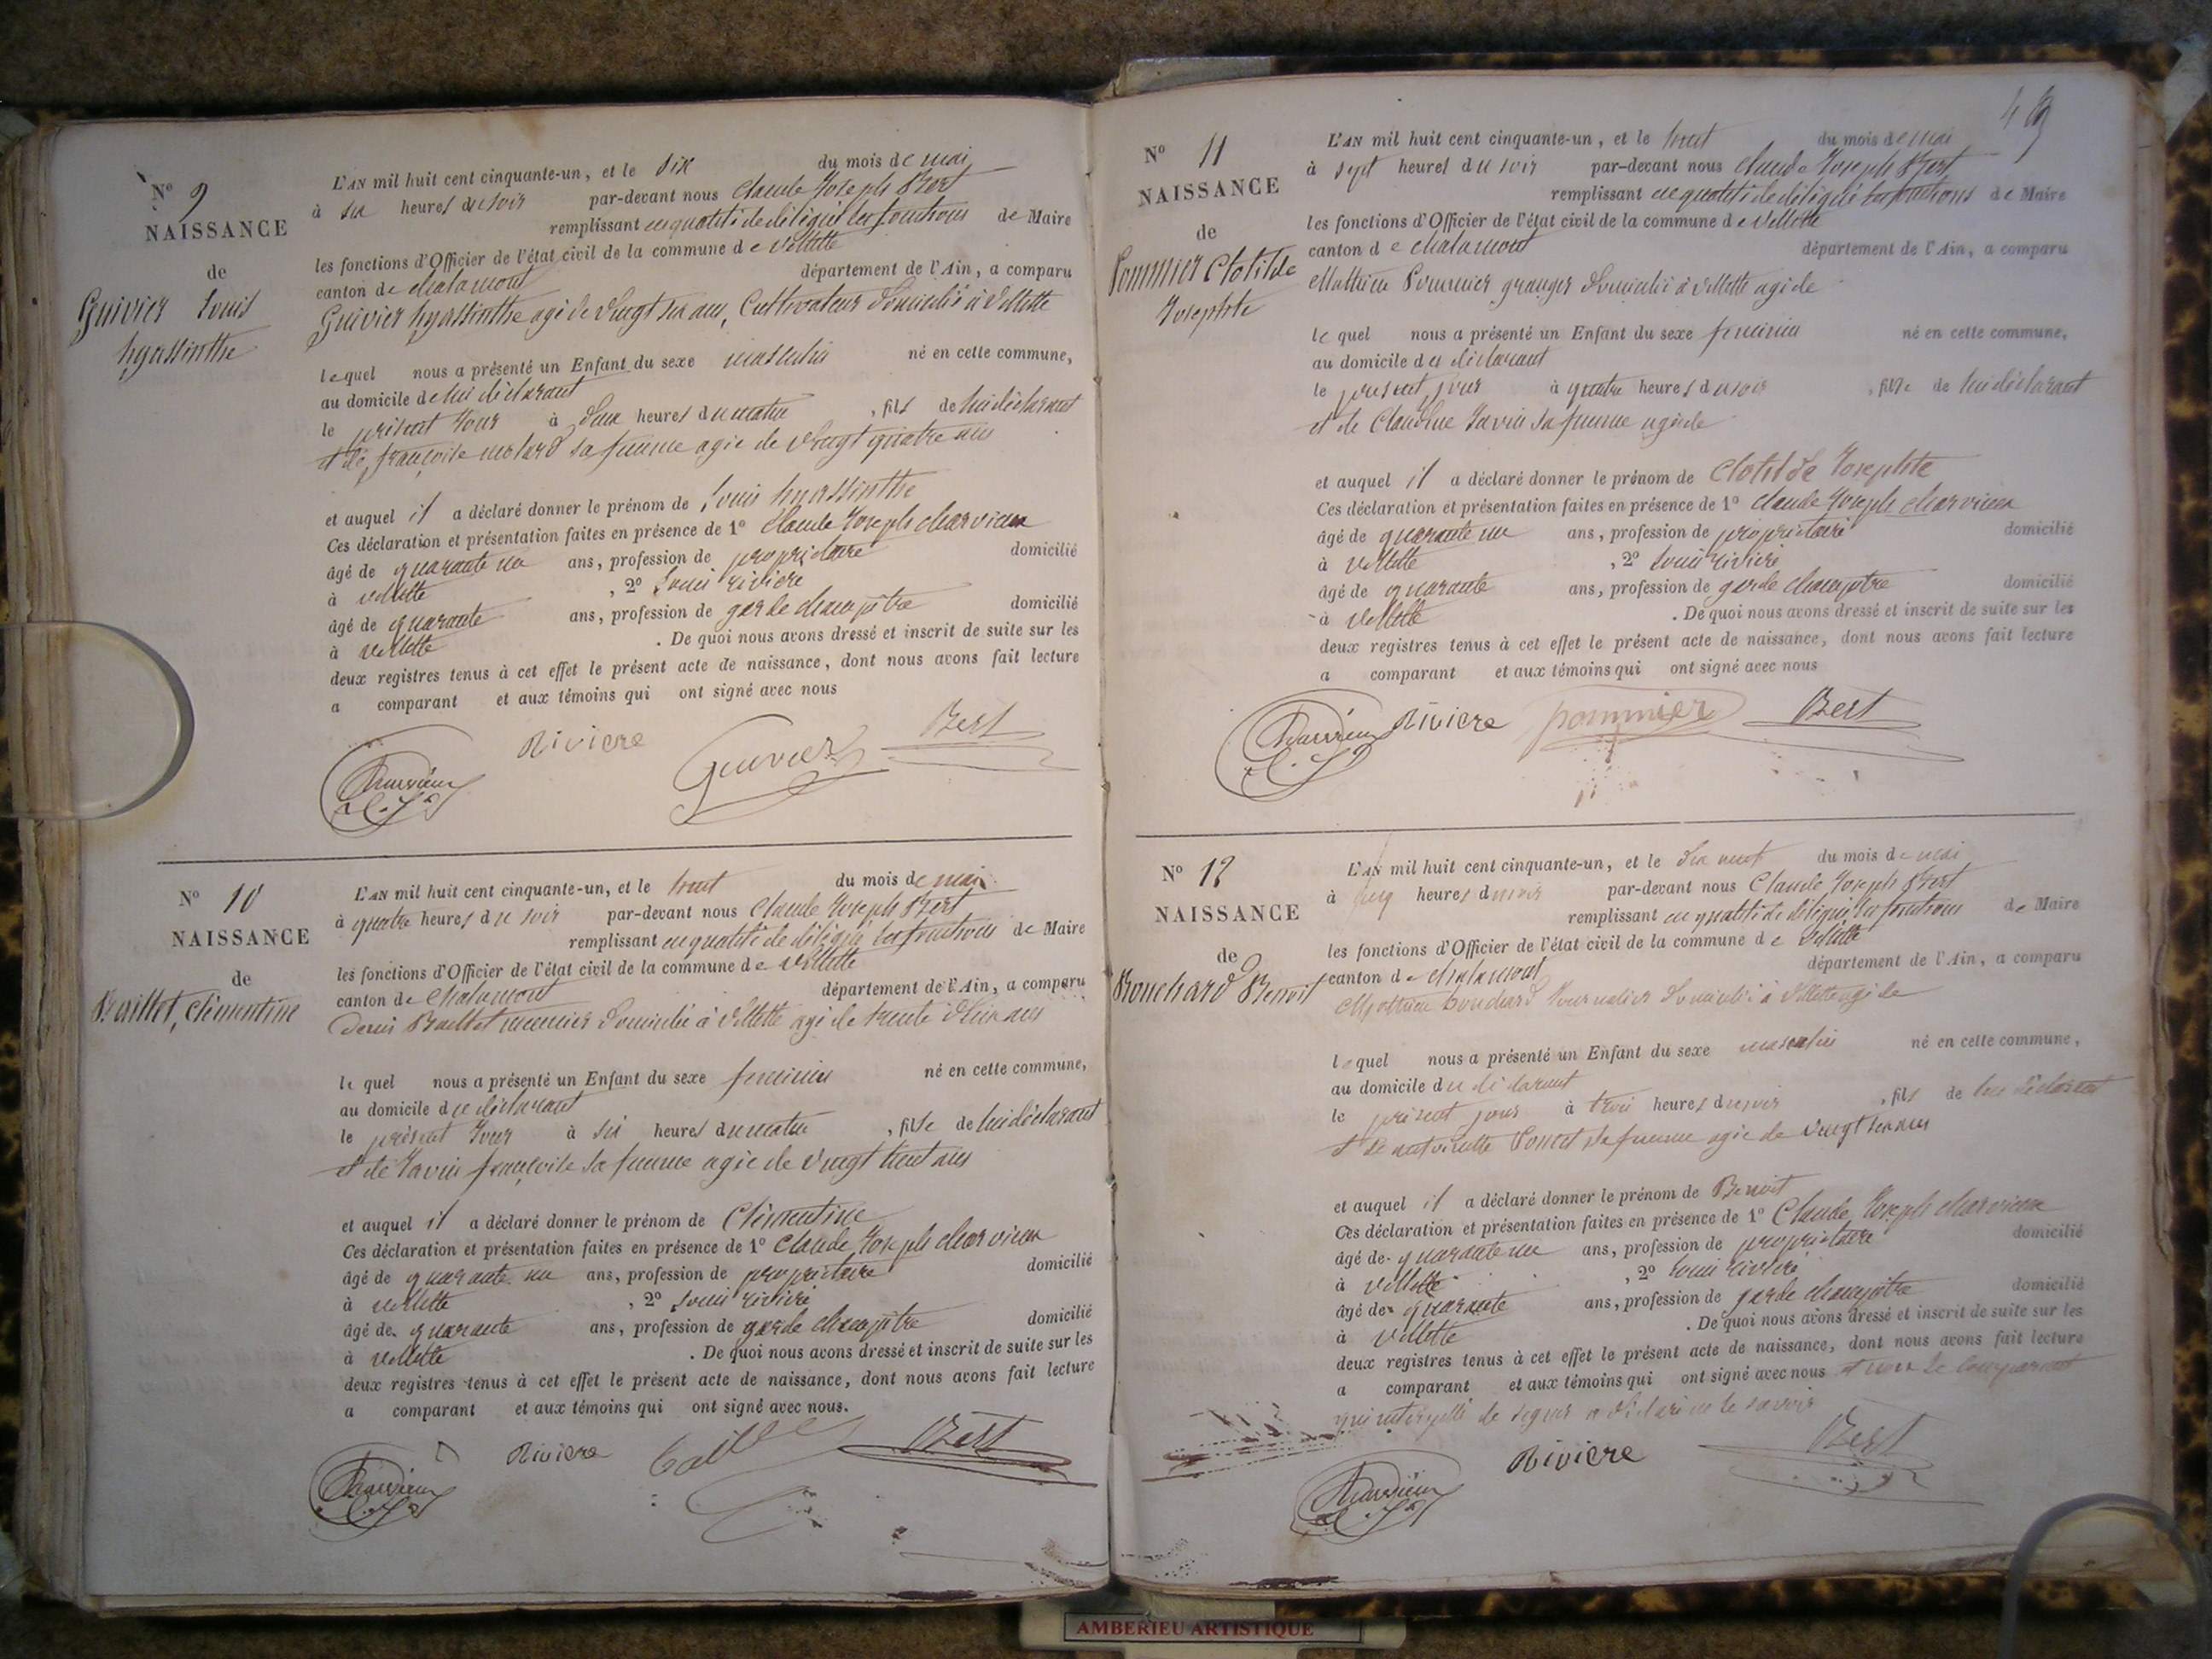 N° 9
NAISSANCE
de
Guivier Louis
hyassinthe
L'AN mil huit cent cinquante-un, et le six du mois de mai
à six heures du soir par-devant nous Claude Joseph Bert
remplissant en qualité de délégué les fonctions de Maire
les fonctions d'Officier de l'état civil de la commune de villette
canton de chalamont département de l'Ain, a comparu
Guivier hyassinthe agé de vingt six ans, Cultivateur domicilié à villette
lequel nous a présenté un Enfant du sexe masculin né en cette commune,
au domicile de lui déclarant
le présent jour à deux heures du matin, fils de lui déclarant
et de françoise sa femme agée de vingt quatre ans
et auquel il a déclaré donner le prénom de Louis hyassinthe
Ces déclaration et présentation faites en présence de 1° Claude Joseph charvieux
âgé de quarante un ans, profession de propriétaire domicilié
à villette, 2° Louis rivière
âgé de quarante ans, profession de garde champêtre domicilié
à villette. De quoi nous avons dressé et inscrit de suite sur les
deux registres tenus à cet effet le présent acte de naissance, dont nous avons fait lecture
a comparant et aux témoins qui ont signé avec nous
Charvieux C. J. Riviere Guivier Bert
N° 10
NAISSANCE
de
Baillet, clémentine
L'AN mil huit cent cinquante-un, et le huit du mois de mai
à quatre heures du soir par-devant nous Claude Joseph Bert
remplissant en qualité de délégué les fonctions de Maire
les fonctions d'Officier de l'état civil de la commune de villette
canton de Chalamont département de l'Ain, a comparu
Denis Baillet meunier domicilié à villette agé de trente ans
le quel nous a présenté un Enfant du sexe féminin né en cette commune,
au domicile du déclarant
le présent jour à six heures du matin, fille de lui déclarant
et de Javin françoise sa femme agée de vingt huit ans
et auquel il a déclaré donner le prénom de Clémentine
Ces déclaration et présentation faites en présence de 1° Claude Joseph charvieux
âgé de quarante un ans, profession de propriétaire domicilié
à villette, 2° Louis rivière
âgé de quarante ans, profession de garde champêtre domicilié
à villette. De quoi nous avons dressé et inscrit de suite sur les
deux registres tenus à cet effet le présent acte de naissance, dont nous avons fait lecture
a comparant et aux témoins qui ont signé avec nous.
Charvieux C. J. Riviere Bert
N° 11
NAISSANCE
de
Pommier Clotilde
Josephte
L'AN mil huit cent cinquante-un, et le huit du mois de mai
à sept heures du soir par-devant nous Claude Joseph Bert
remplissant en qualité de délégué les fonctions de Maire
les fonctions d'Officier de l'état civil de la commune de villette
canton de chalamont département de l'Ain, a comparu
Mathieu Pommier granger domicilié à villette agé de
le quel nous a présenté un Enfant du sexe féminin né en cette commune,
au domicile du déclarant
le présent jour à quatre heures du soir, fille de lui déclarant
et de Claudine Javin sa femme agée de
et auquel il a déclaré donner le prénom de Clotilde Josephte
Ces déclaration et présentation faites en présence de 1° Claude Joseph charvieux
âgé de quarante un ans, profession de propriétaire domicilié
à villette, 2° Louis rivière
âgé de quarante ans, profession de garde champêtre domicilié
à villette. De quoi nous avons dressé et inscrit de suite sur les
deux registres tenus à cet effet le présent acte de naissance, dont nous avons fait lecture
a comparant et aux témoins qui ont signé avec nous
Charvieux C. J. Riviere pommier Bert
N° 12
NAISSANCE
de
Bouchard Benoit
L'AN mil huit cent cinquante-un, et le dix neuf du mois de mai
à cinq heures du soir par-devant nous Claude Joseph Bert
remplissant en qualité de délégué les fonctions de Maire
les fonctions d'Officier de l'état civil de la commune de villette
canton de chalamont département de l'Ain, a comparu
Mathieu bouchard journalier domicilié à villette agé de
lequel nous a présenté un Enfant du sexe masculin né en cette commune,
au domicile du déclarant
le présent jour à trois heures du soir, fils de lui déclarant
et de antoinette Poncet sa femme agée de vingt six ans
et auquel il a déclaré donner le prénom de Benoit
Ces déclaration et présentation faites en présence de 1° Claude Joseph charvieux
âgé de quarante un ans, profession de propriétaire domicilié
à villette, 2° Louis rivière
âgé de quarante ans, profession de garde champêtre domicilié
à villette. De quoi nous avons dressé et inscrit de suite sur les
deux registres tenus à cet effet le présent acte de naissance, dont nous avons fait lecture
a comparant et aux témoins qui ont signé avec nous et non le comparant
qui interpellé de signer a déclaré ne le savoir
Charvieux C. J. Riviere Bert
AMBERIEU ARTISTIQUE